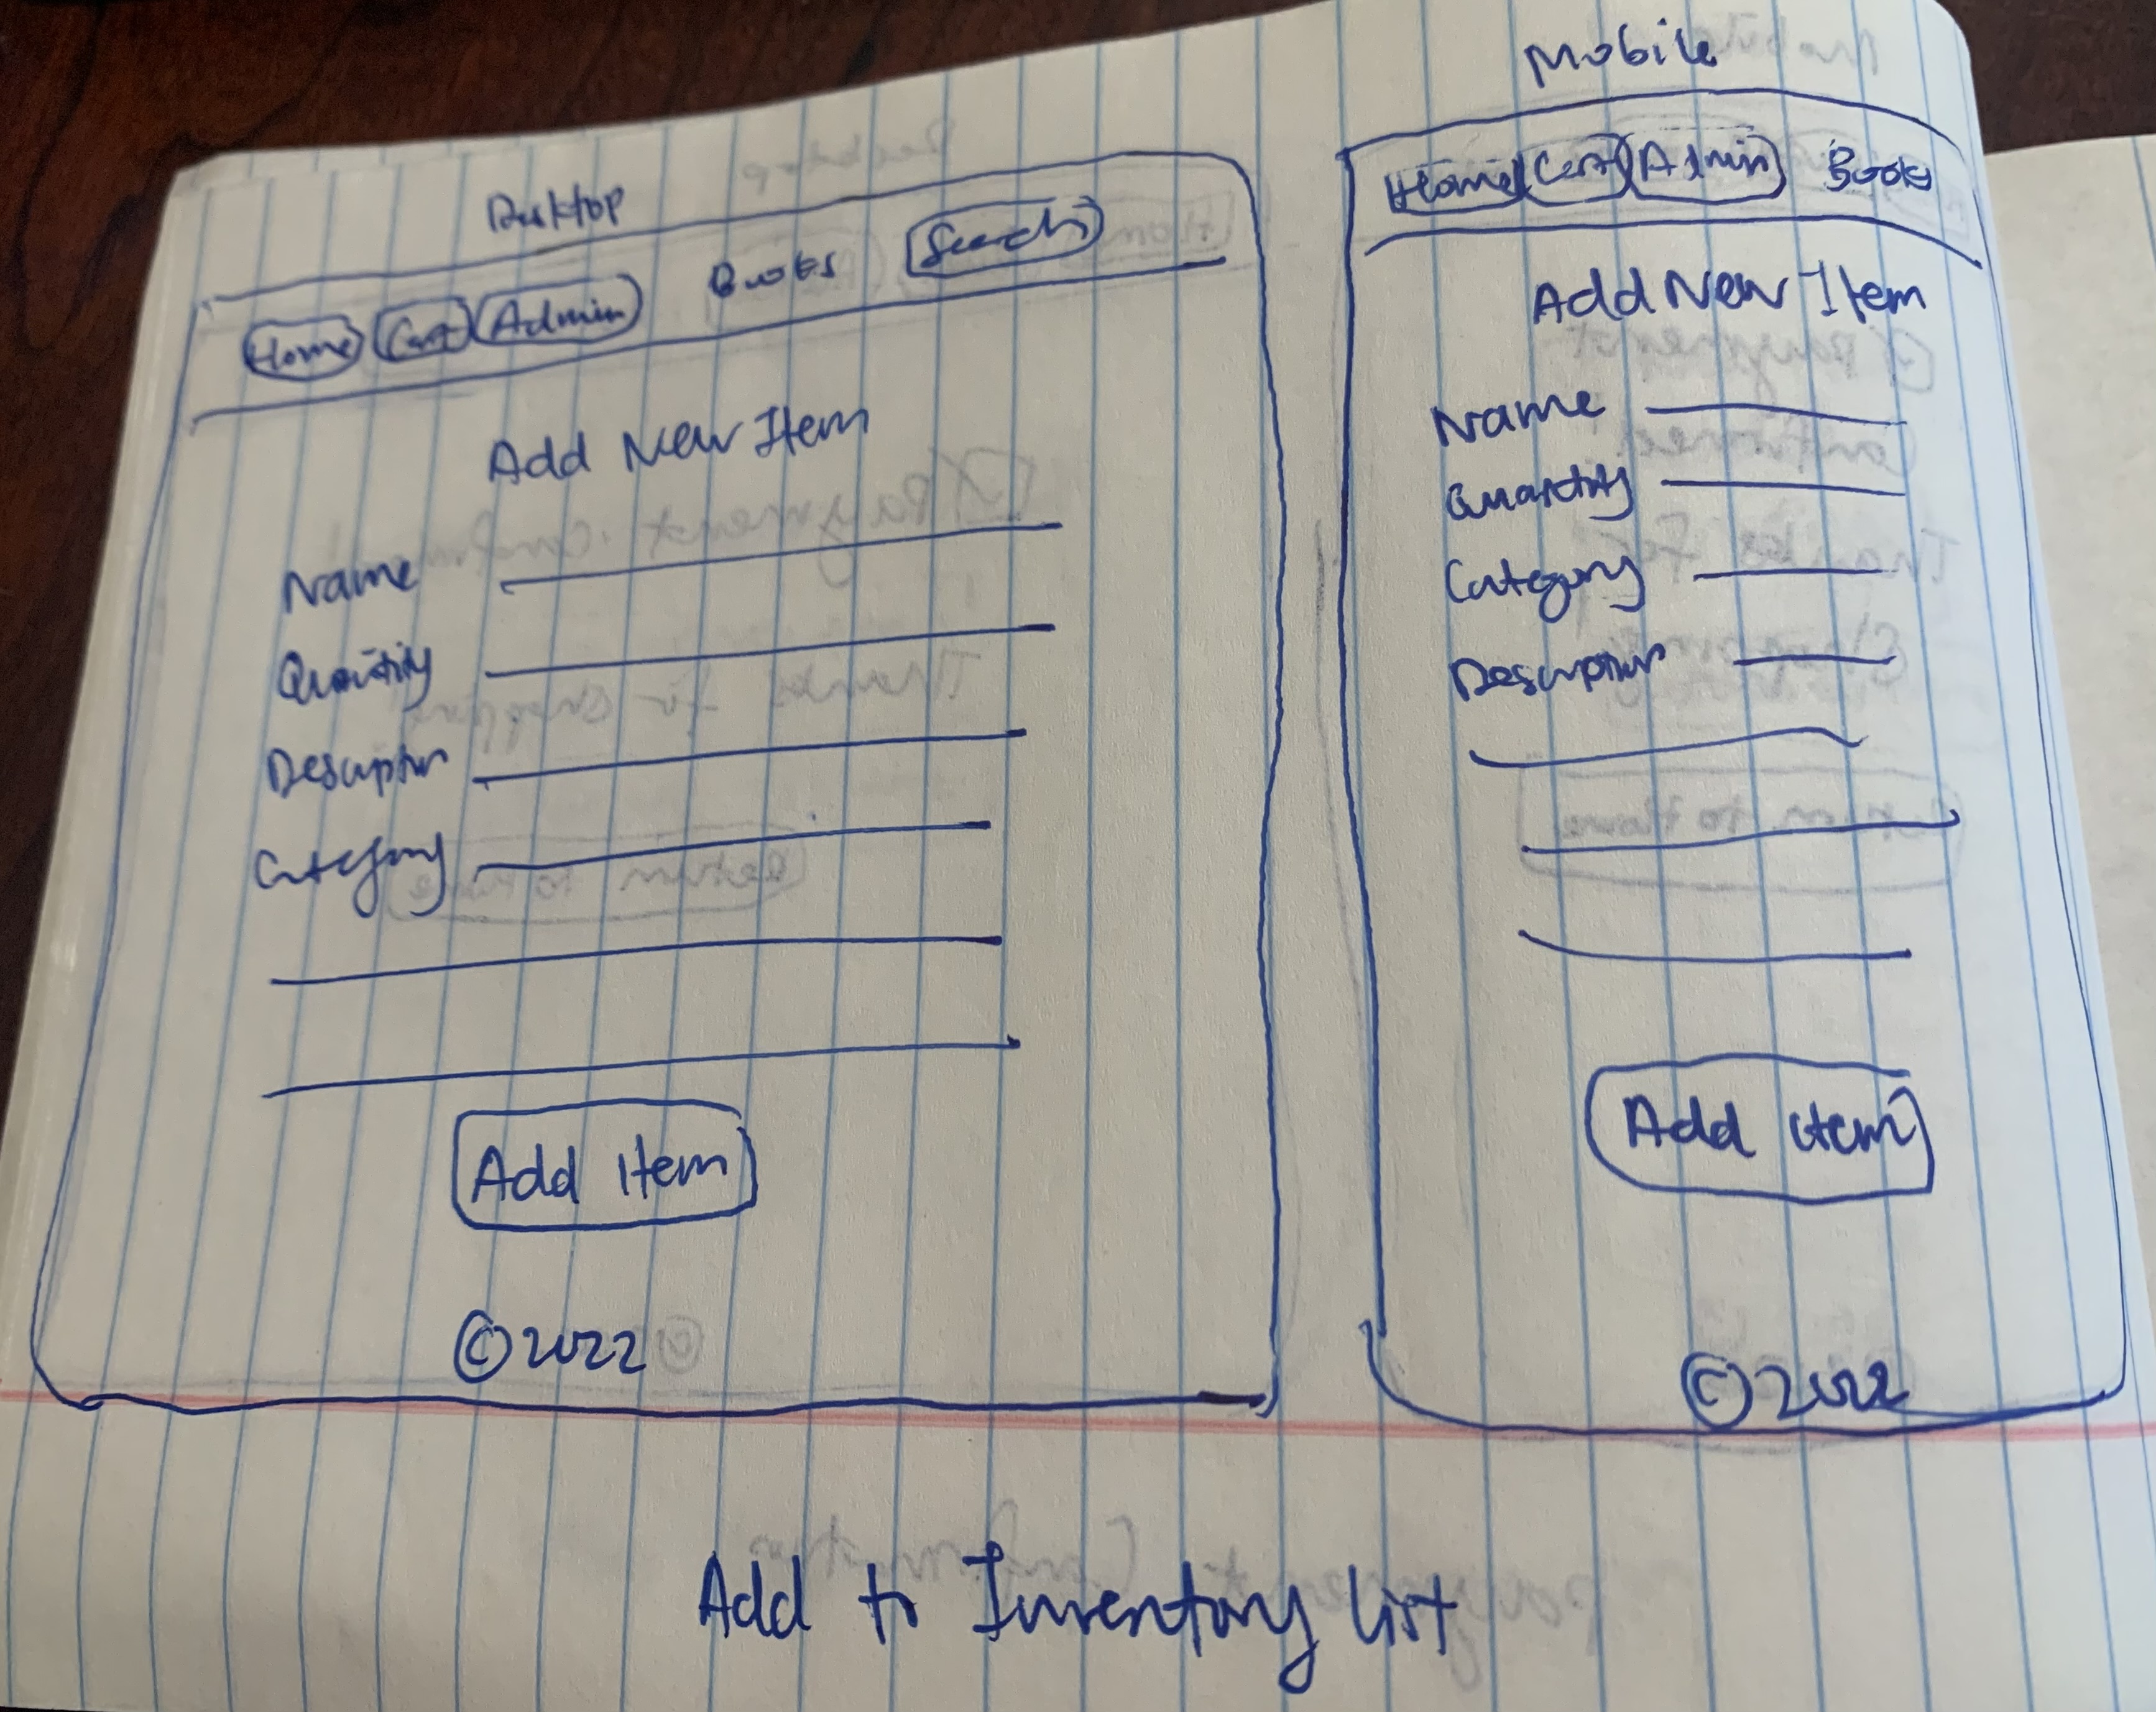 Desktop
Home Cart Admin Books Search
Add New Item
Name
Quantity
Description
Category
Add Item
©2022
Mobile
Home Cart Admin Books
Add New Item
Name
Quantity
Category
Description
Add item
©2022
Add to Inventory list